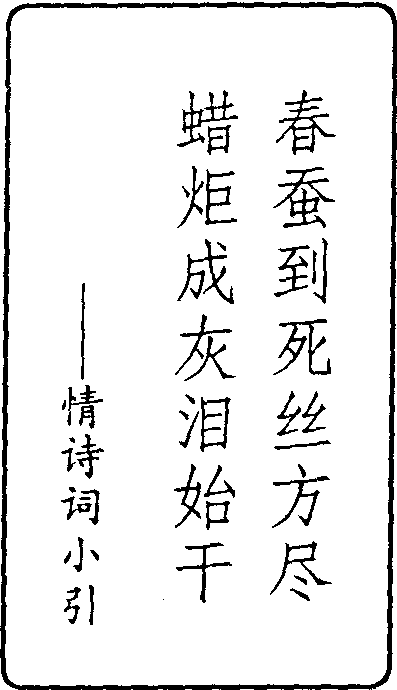 春蚕到死丝方尽
蜡炬成灰泪始干
——情诗词小引